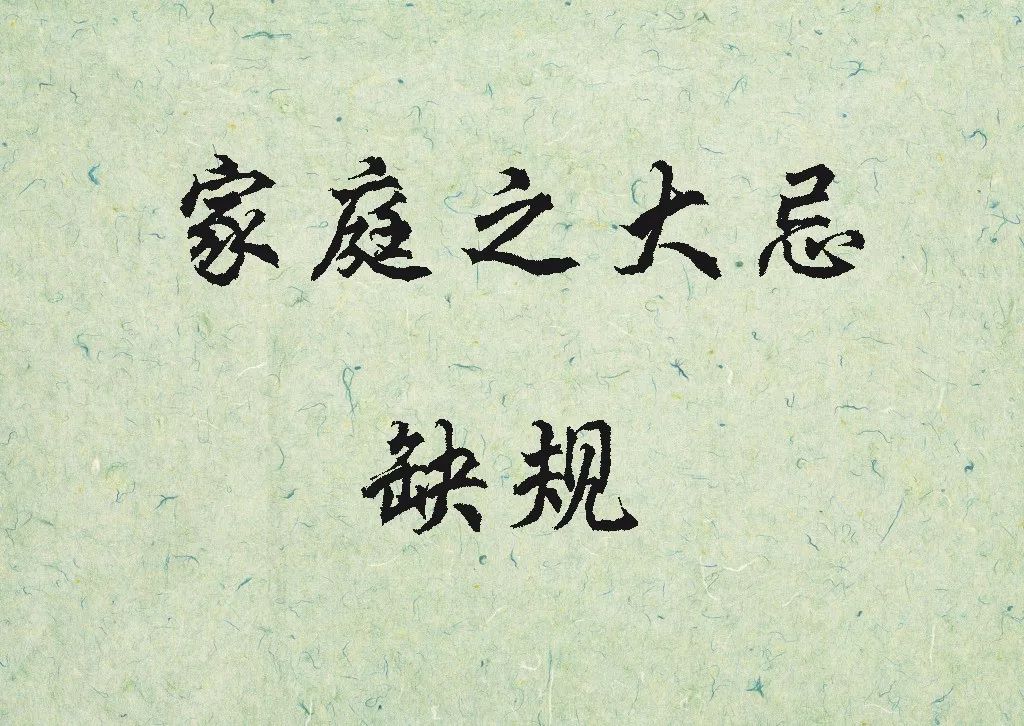 家庭之大忌
缺规